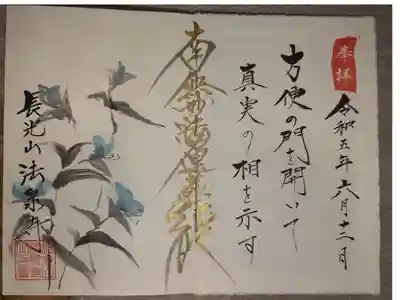 奉拝
令和五年六月十二日
方便の門を開いて
真実の相を示す
南無妙法蓮華経
長光山 法泉寺